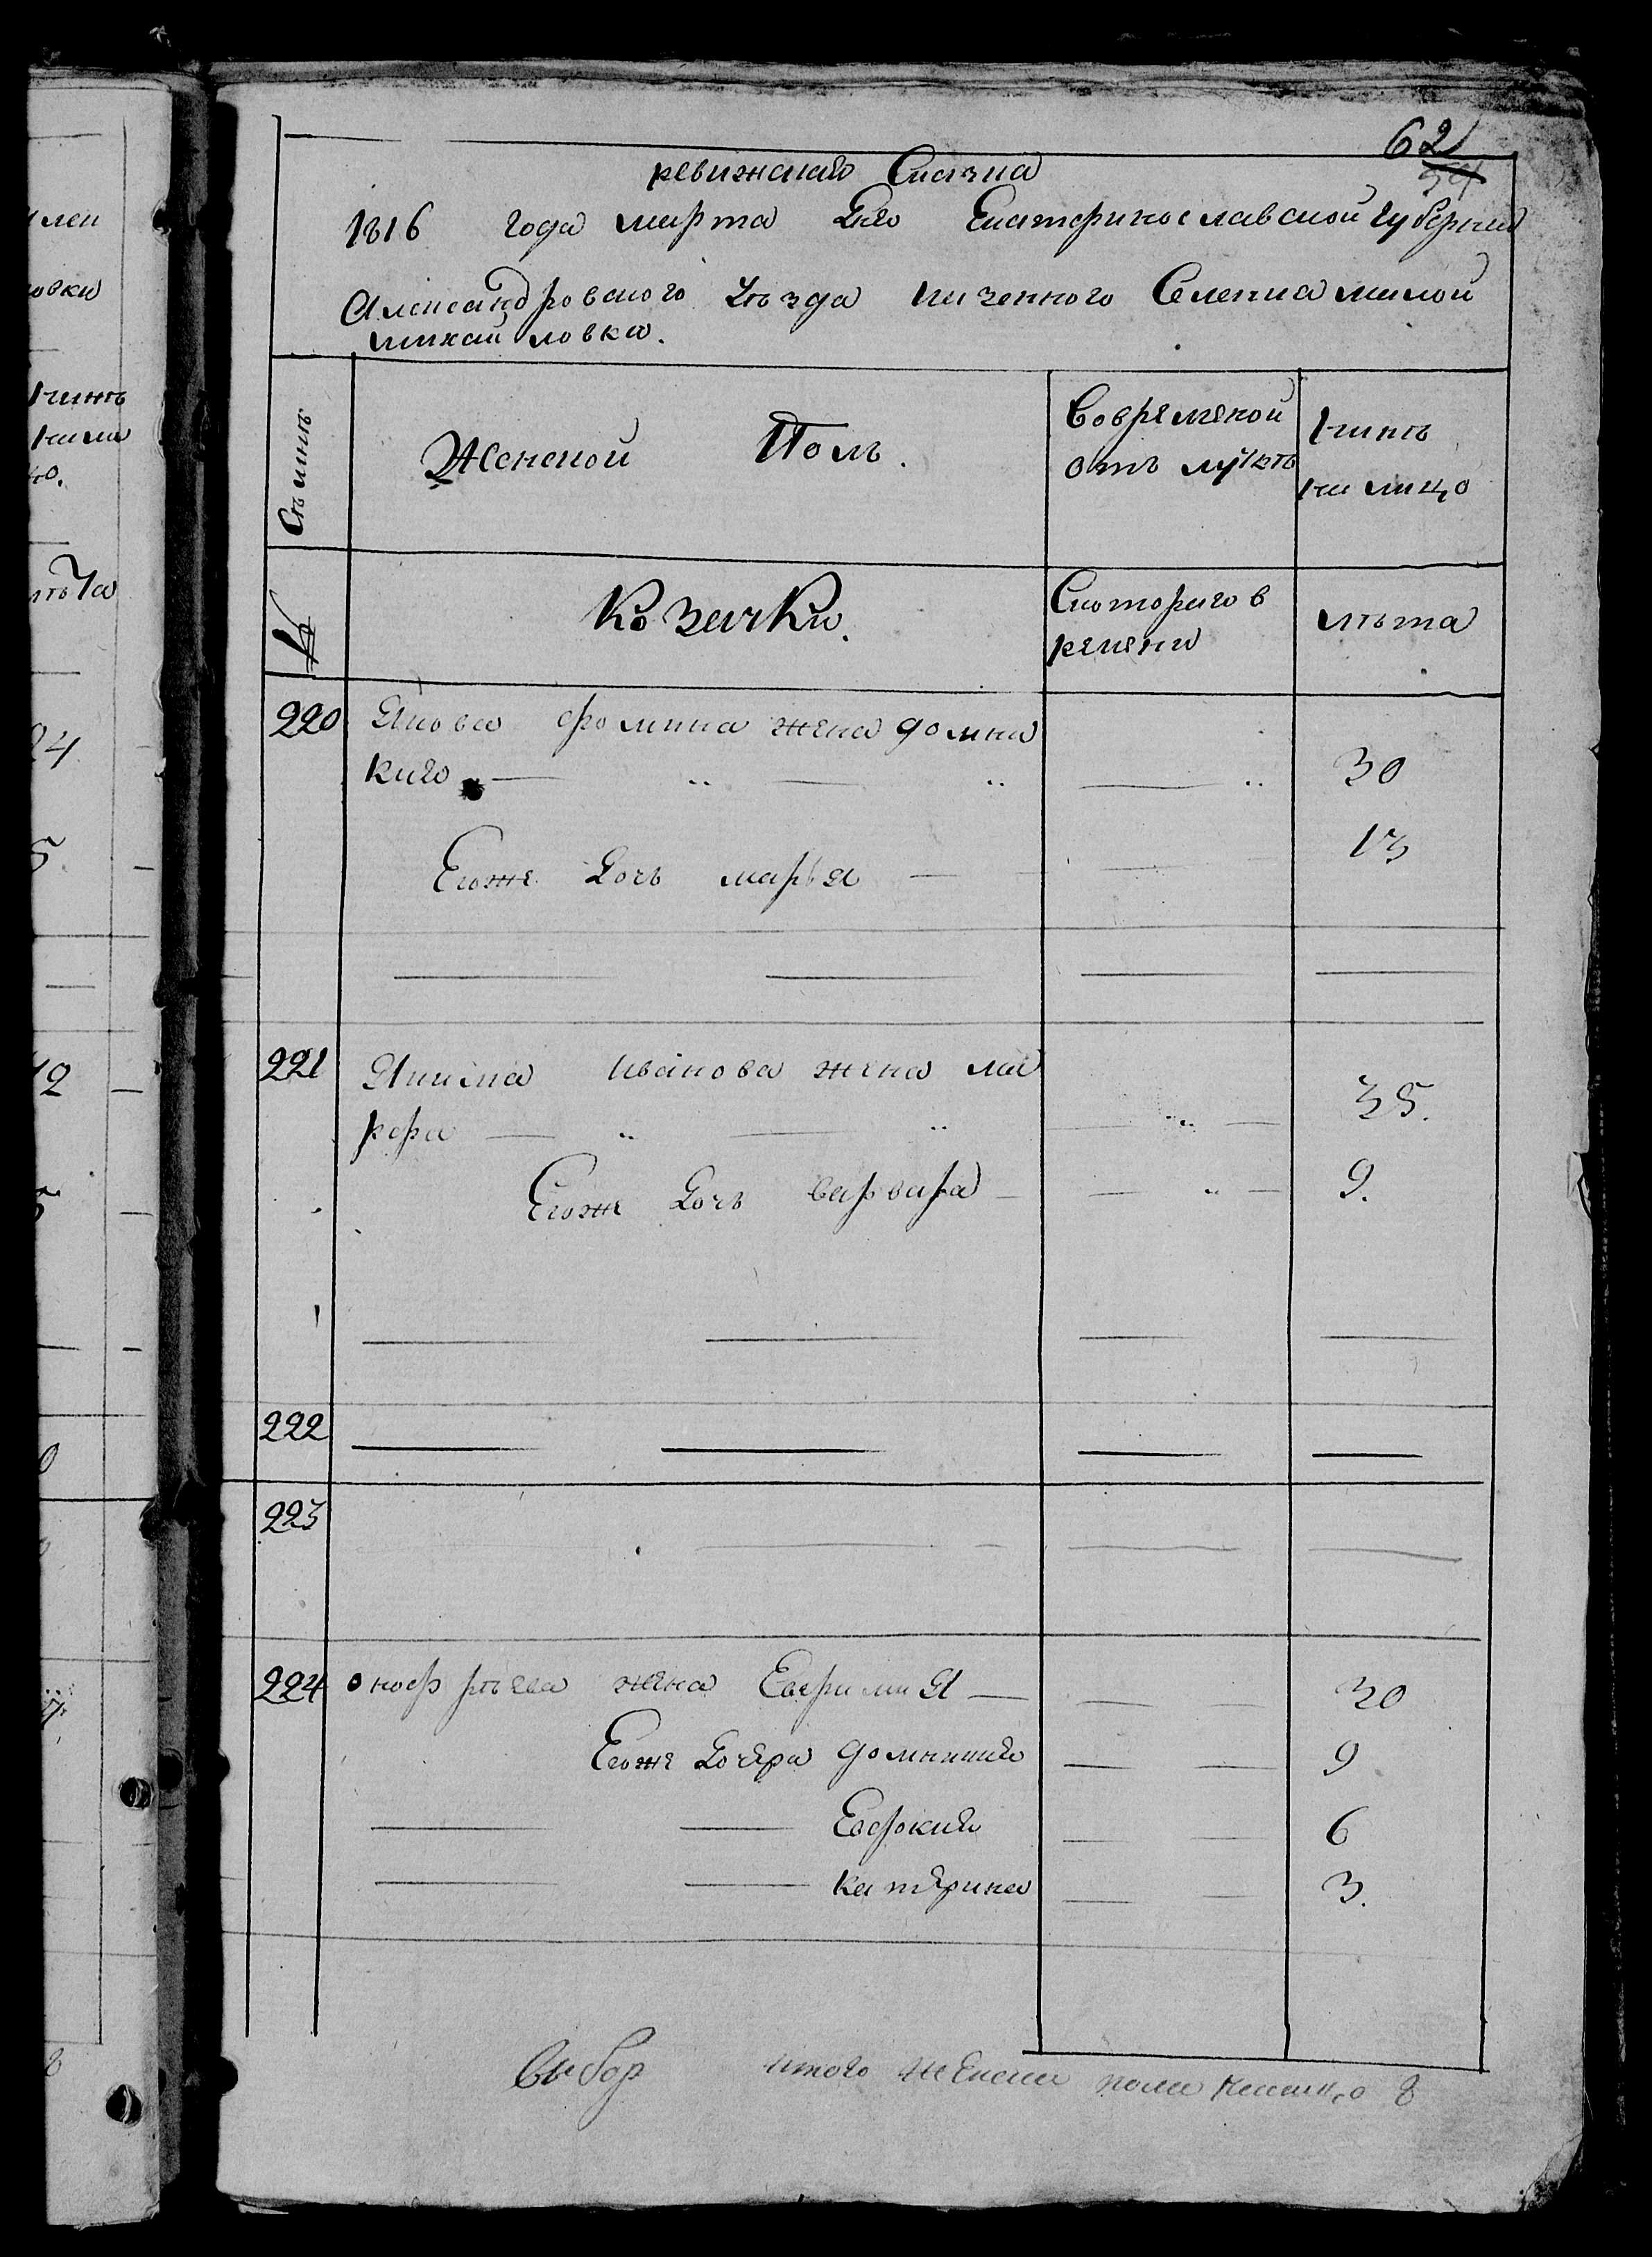 62
ревижская Сказка
1816 года марта дня Екатеринославской губернии
Александровского уезда казенного Селения малой
михайловка.
Семьи
Женской Полъ.
Вовременой
отлучкѣ
Нынѣ
на лицо
№
Козачки.
Скотораго в
ремени
лѣта
220 Якова фомина жена домна
кия — „ — „ — „ 30
Егоже дочь марья — — 13
221 Якима иванова жена ма
рфа — „ — „ — „ — 35.
Егоже дочь варвара — — „ — 9.
222
223
224 онофрѣева жена Евфимия — — — 30
Егоже дочери домникия — — 9
— — Евфокия — — 6
— — катерина — — 3.
итого женска пола налицо 8